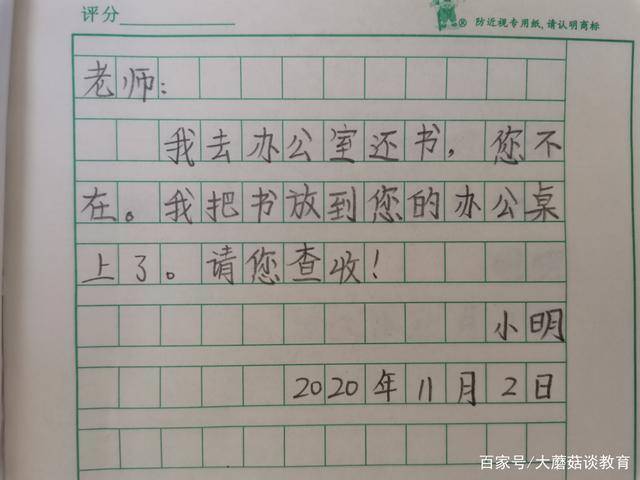 评分
® 防近视专用纸,请认明商标
老师:
我去办公室还书,您不
在。我把书放到您的办公桌
上了。请您查收!
小明
2020年11月2日
百家号/大蘑菇谈教育